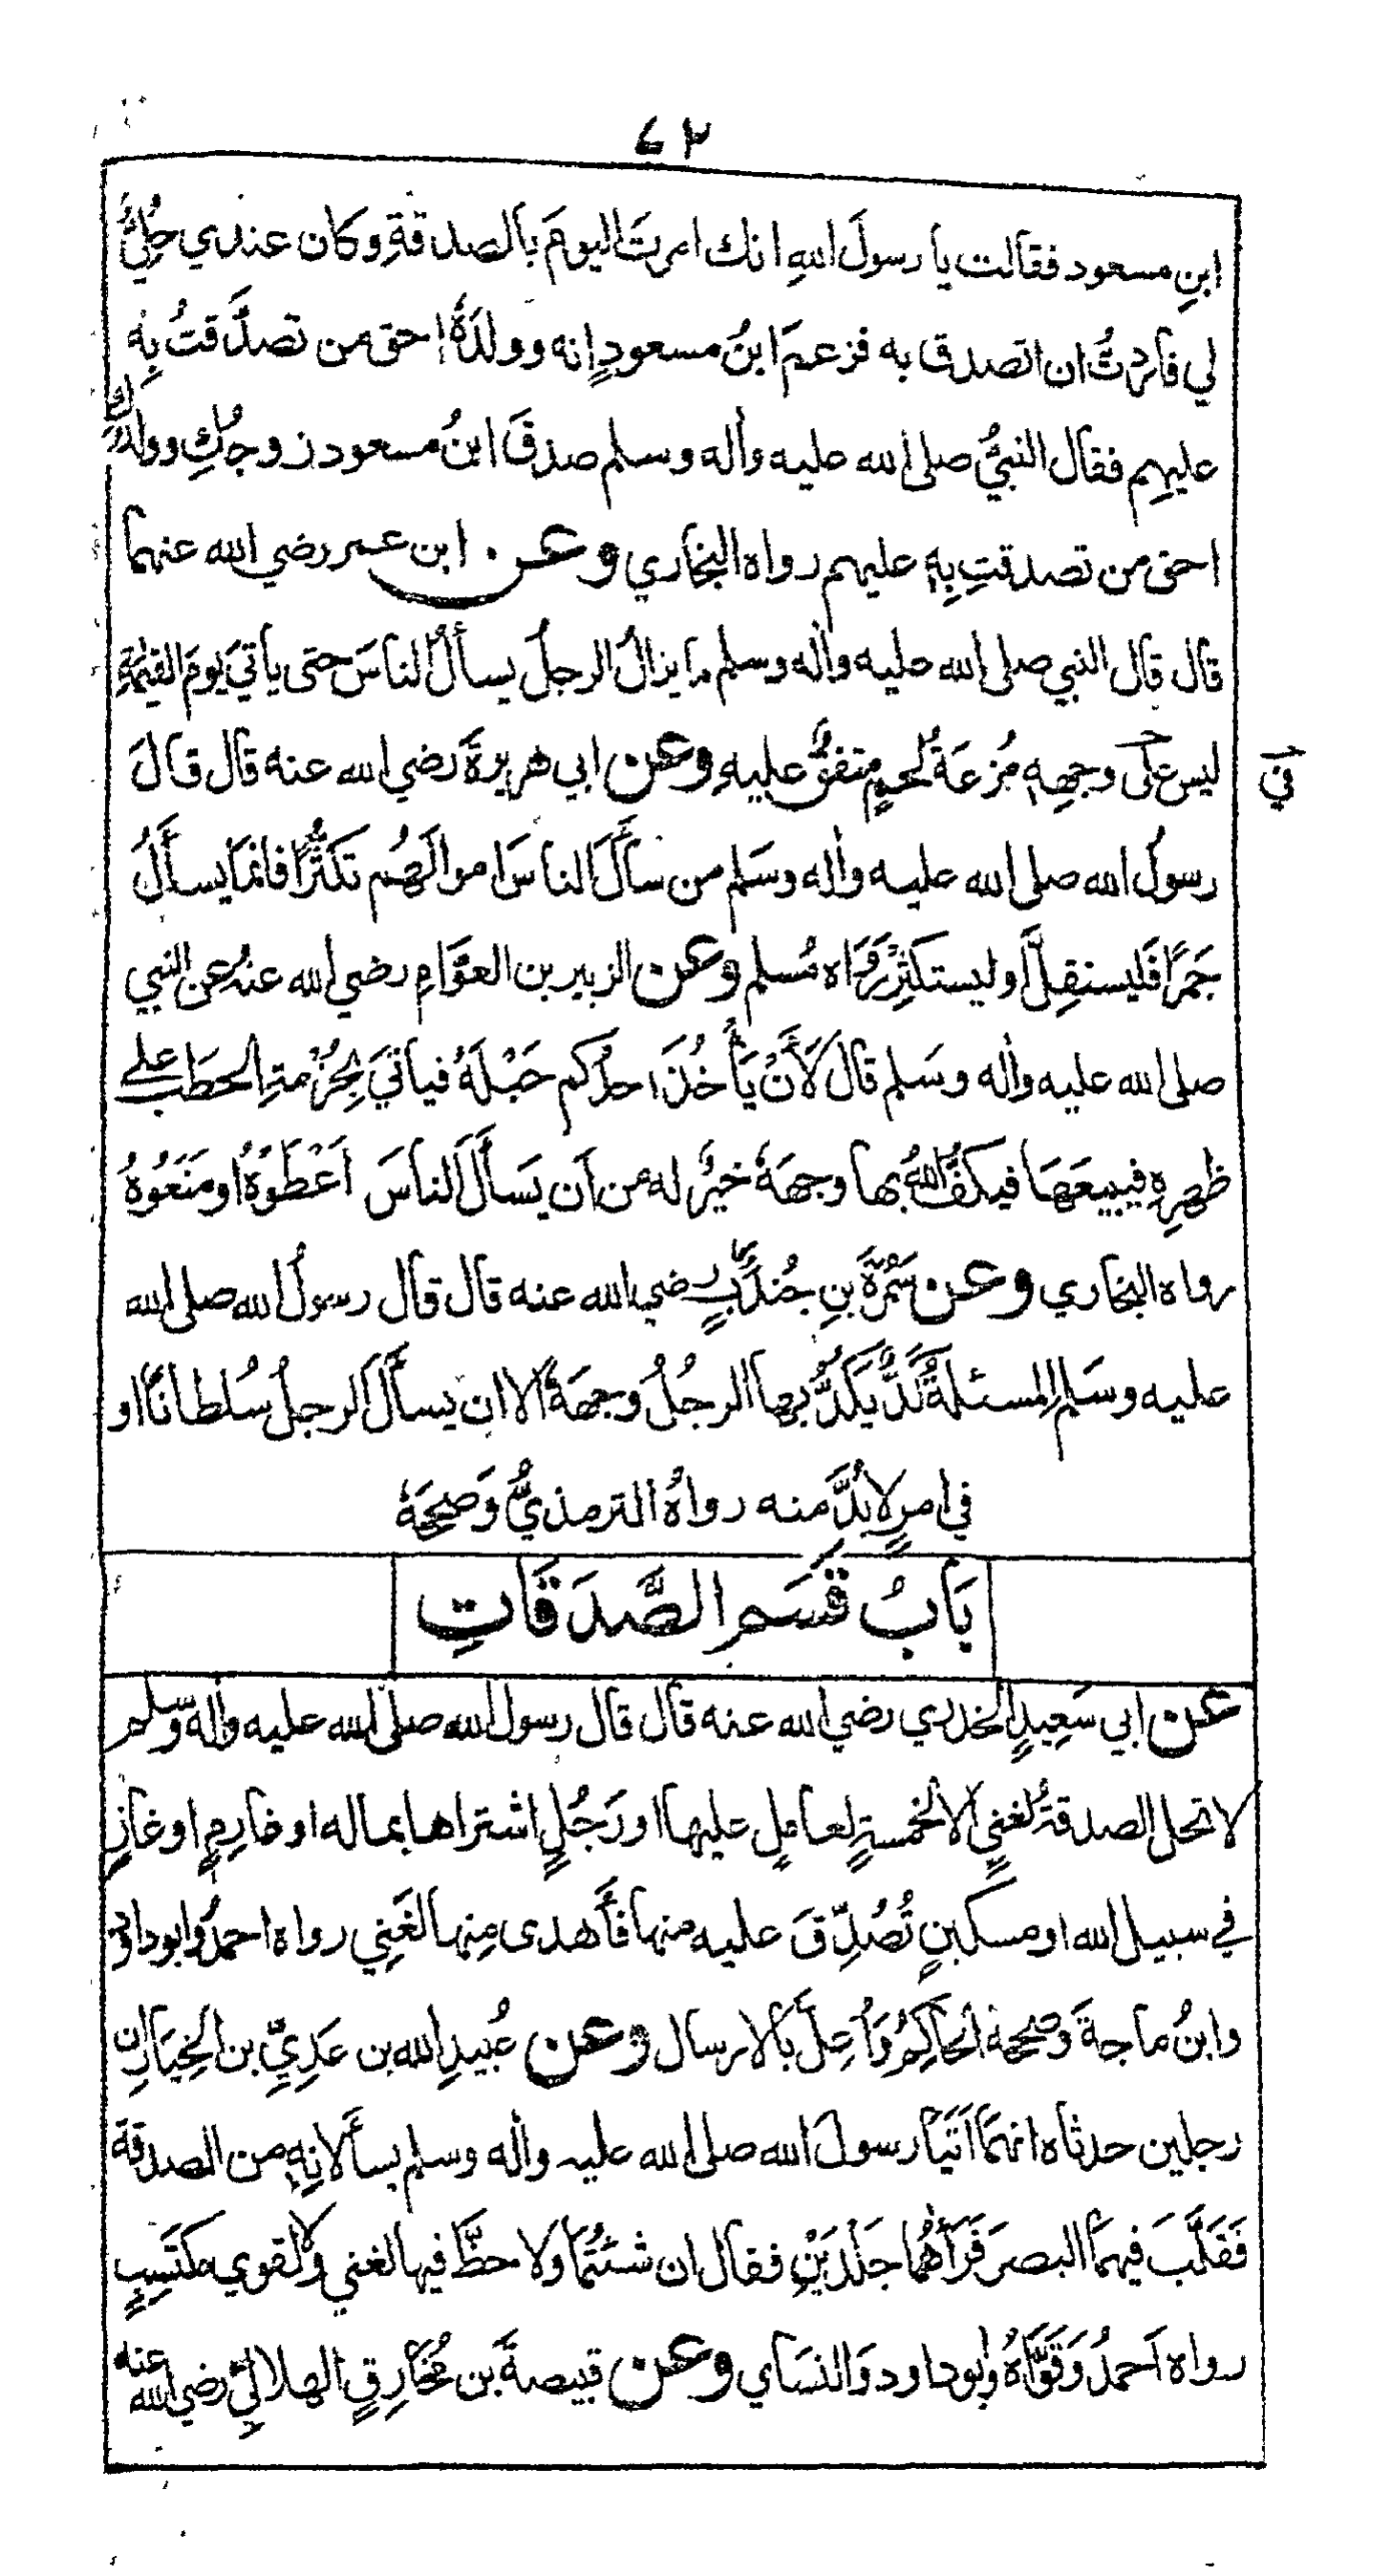 ٧٢
ابنِ مسعود فقالت يا رسولَ اللهِ انك امرتَ اليومَ بالصدقةِ وكان عندي حُلِيٌّ
لي فاردتُ ان اتصدق به فزعمَ ابنُ مسعودٍ انه وولدَهٗ احق من تصدَّقتُ بِهٖ
عليهم فقال النبيُّ صلى الله عليه واٰله وسلم صدقَ ابنُ مسعود زوجُكِ وولدُكِ
احق من تصدقتِ بِهٖ عليهم رواه البخاري وعن ابن عمر رضي الله عنهما
قال قال النبي صلى الله عليه واٰله وسلم ما يزالُ الرجلُ يسألُ الناسَ حتى يأتيَ يومَ القيٰمةِ
ليس علٰى وجهِهٖ مُزعَةُ لحمٍ متفقٌ عليهِ وعن ابي هريرةَ رضي الله عنه قال قالَ
في
رسولُ الله صلى الله عليه واٰله وسَلم من سألَ الناسَ اموالَهُم تَكَثُّرًا فانمَا يسأَلُ
جَمرًا فَليستقِلَّ او ليستكثِرْ رَوَاه مُسلم وعن الزبير بن العوَّامِ رضي الله عنهُ عن النبي
صلى الله عليه واٰله وسَلم قال لَاَنْ يَأخُذَ احدُكم حَبْلَهٗ فياتيَ بِحُزْمةِ الحطَب على
ظهرِهٖ فيبيعَهَا فيكفَّ اللهُ بها وجهَهٗ خيرٌ له من اَن يَسأَلَ الناسَ اَعْطَوْهُ او مَنَعُوْهُ
رواه البخاري وعن سَمُرَةَ بنِ جُندَبٍ رضي الله عنه قال قال رسولُ الله صلى الله
عليه وسَلم المسئلةُ كَدٌّ يَكُدُّ بها الرجُلُ وجهَهٗ الا ان يسأَلَ الرجلُ سُلطانًا او
في امرٍ لا بُدَّ منه رواهُ الترمذيُّ وَصححَهٗ
بَابُ قَسَمِ الصَّدَقَاتِ
عن ابي سَعِيدٍ الخدري رضي الله عنه قال قال رسول الله صلى الله عليه واٰله وسلم
لا تحل الصدقةُ لغنيٍ الا لخمسةٍ لعاملٍ عليها او رَجُلٍ اشتراها بماله او غارِمٍ او غازٍ
في سبيل الله او مسكينٍ تُصُدِّقَ عليه منها فأَهدى مِنها لغَنِي رواه احمدُ وابوداود
وابنُ ماجةَ وصححهُ الحاكِمُ وَاُعِلَّ بالارسال وعن عُبيدِ الله بن عَدِيِّ بن الخِيَارِ ان
رجلين حدثاه انهمَا اَتَيَا رسولَ الله صلى الله عليه واٰله وسلم يسأَلانِهٖ من الصدقة
فَقَلَّبَ فيهمَا البصرَ فَرَأهُمَا جَلْدَيْنِ فقال ان شئتُمَا ولا حظَّ فيها لغني ولا لقوي مكتَسِبٍ
رواه اَحمدُ وَقَوَّاهُ وابوداود وَالنسَاي وعن قبيصةَ بن مُخَارِقٍ الهلاليِّ رضي الله عنه